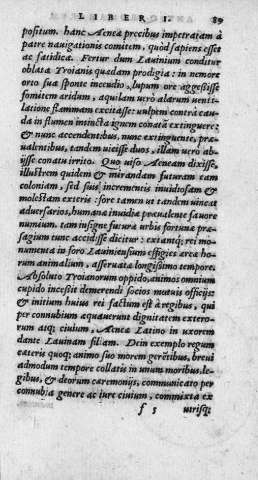 LIBER I. 89
positum. hanc Aeneæ precibus impetratam à
patre nauigationis comitem, quòd sapiens esset
ac fatidica. Fertur dum Lauinium conditur
oblata Troianis quædam prodigia: in nemore
orto sua sponte incendio, lupum ore aggessisse
fomitem aridum, aquilam uerò alarum uenti-
latione flammam excitasse: uulpem contrà cau-
da in flumen intincta ignem conatā extinguere:
& nunc accendentibus, nunc extinguente, præ-
ualentibus, tandem uicisse duos, illam uerò ab-
ijsse conatu irrito. Quo uiso Aeneam dixisse,
illustrem quidem & mirandam futuram eam
coloniam, sed suis incrementis inuidiosam &
molestam exteris: fore tamen ut tandem uincat
aduersarios, humana inuidia præualente fauore
numinum. tam insigne futuræ urbis fortunæ præ-
sagium tunc accidisse dicitur: extantq; rei mo-
numenta in foro Lauiniensium effigies ærea ho-
rum animalium, asseruata longissimo tempore.
Absoluto Troianorum oppido, animos omnium
cupido incessit demerendi socios mutuis officijs:
& initium huius rei factum est à regibus, qui
per connubium aquauerunt dignitatem extero-
rum atq; ciuium, Aeneæ Latino in uxorem
dante Lauinam filiam. Dein exemplo regum
cæteris quoq; animo suo morem gerētibus, breui
admodum tempore collatis in unum moribus, le-
gibus, & deorum cæremonijs, communicato per
connubia genere ac iure ciuium, commixta ex
f 5 utrisq;